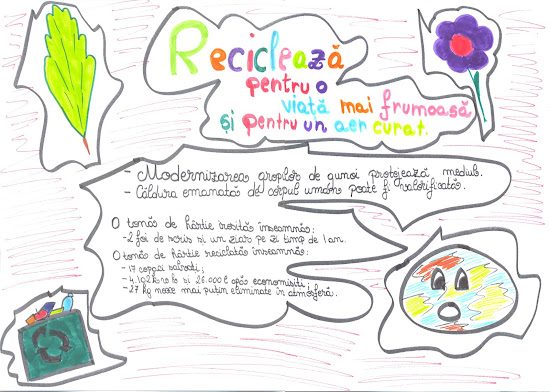 Reciclează
pentru o
viață mai frumoasă
și pentru un aer curat.
- Modernizarea gropilor de gunoi protejează mediul.
- Căldura emanată de corpul uman poate fi valorificată.
O tonăs de hârtie irosită înseamnă:
- 2 foi de scris si un ziar pe zi timp de 1 an.
O tonăs de hârtie reciclată înseamnă:
- 17 copaci salvați;
si 26.000 l apăs economisiți;
- 27 kg noxe mai puțin eliminate în atmosferă.